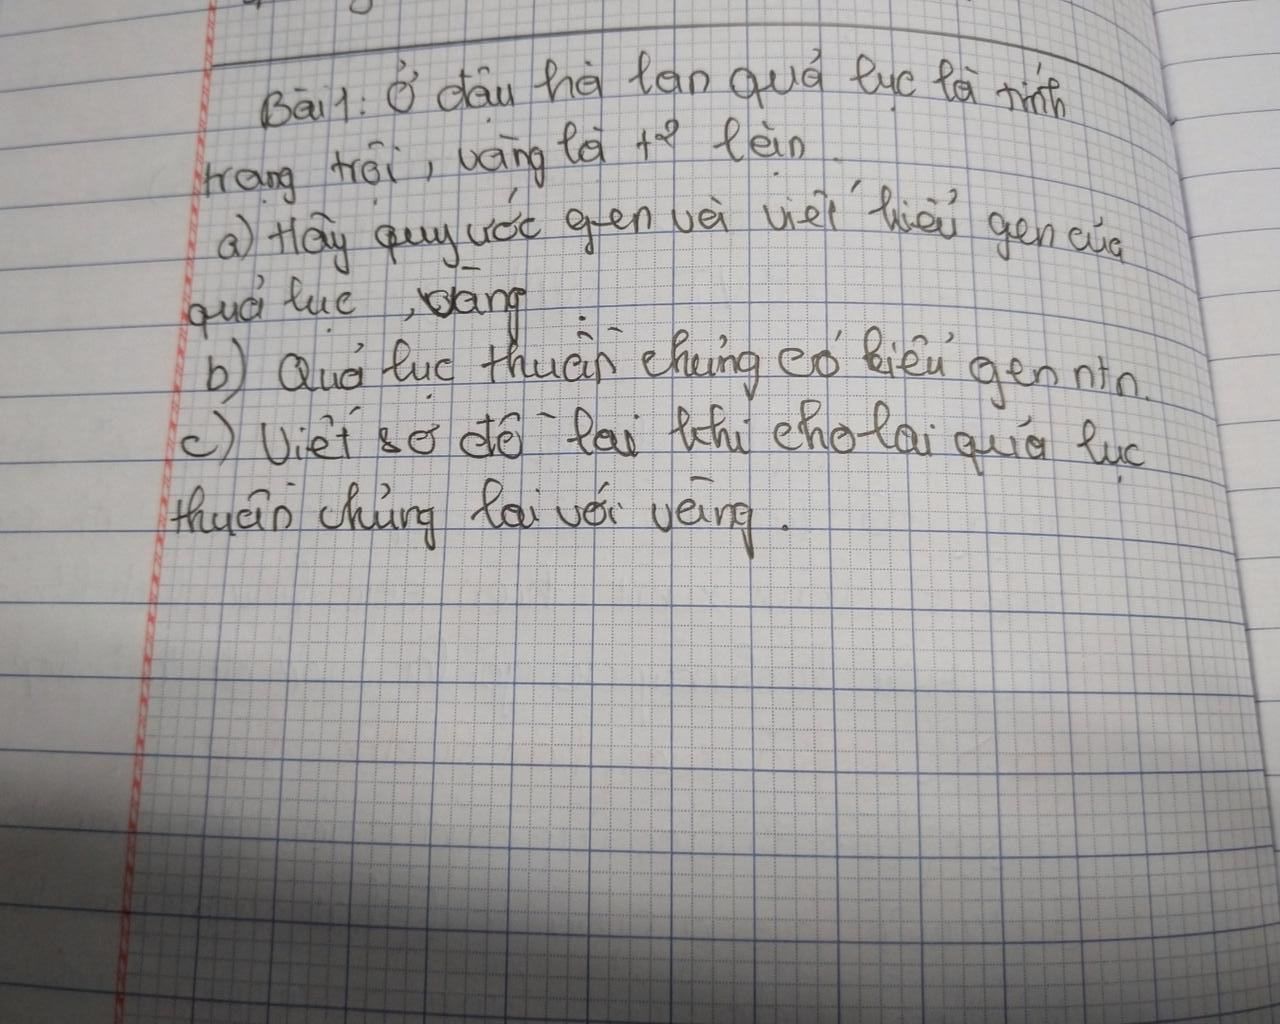 Bài 1: Ở đậu hà lan quả lục là tính
trạng trội, vàng là t² lặn.
a) Hãy quy ước gen và viết kiểu gen của
quả lục, vàng
b) Quả lục thuần chủng có kiểu gen ntn.
c) Viết sơ đồ lai khi cho lai quả lục
thuần chủng lai với vàng.